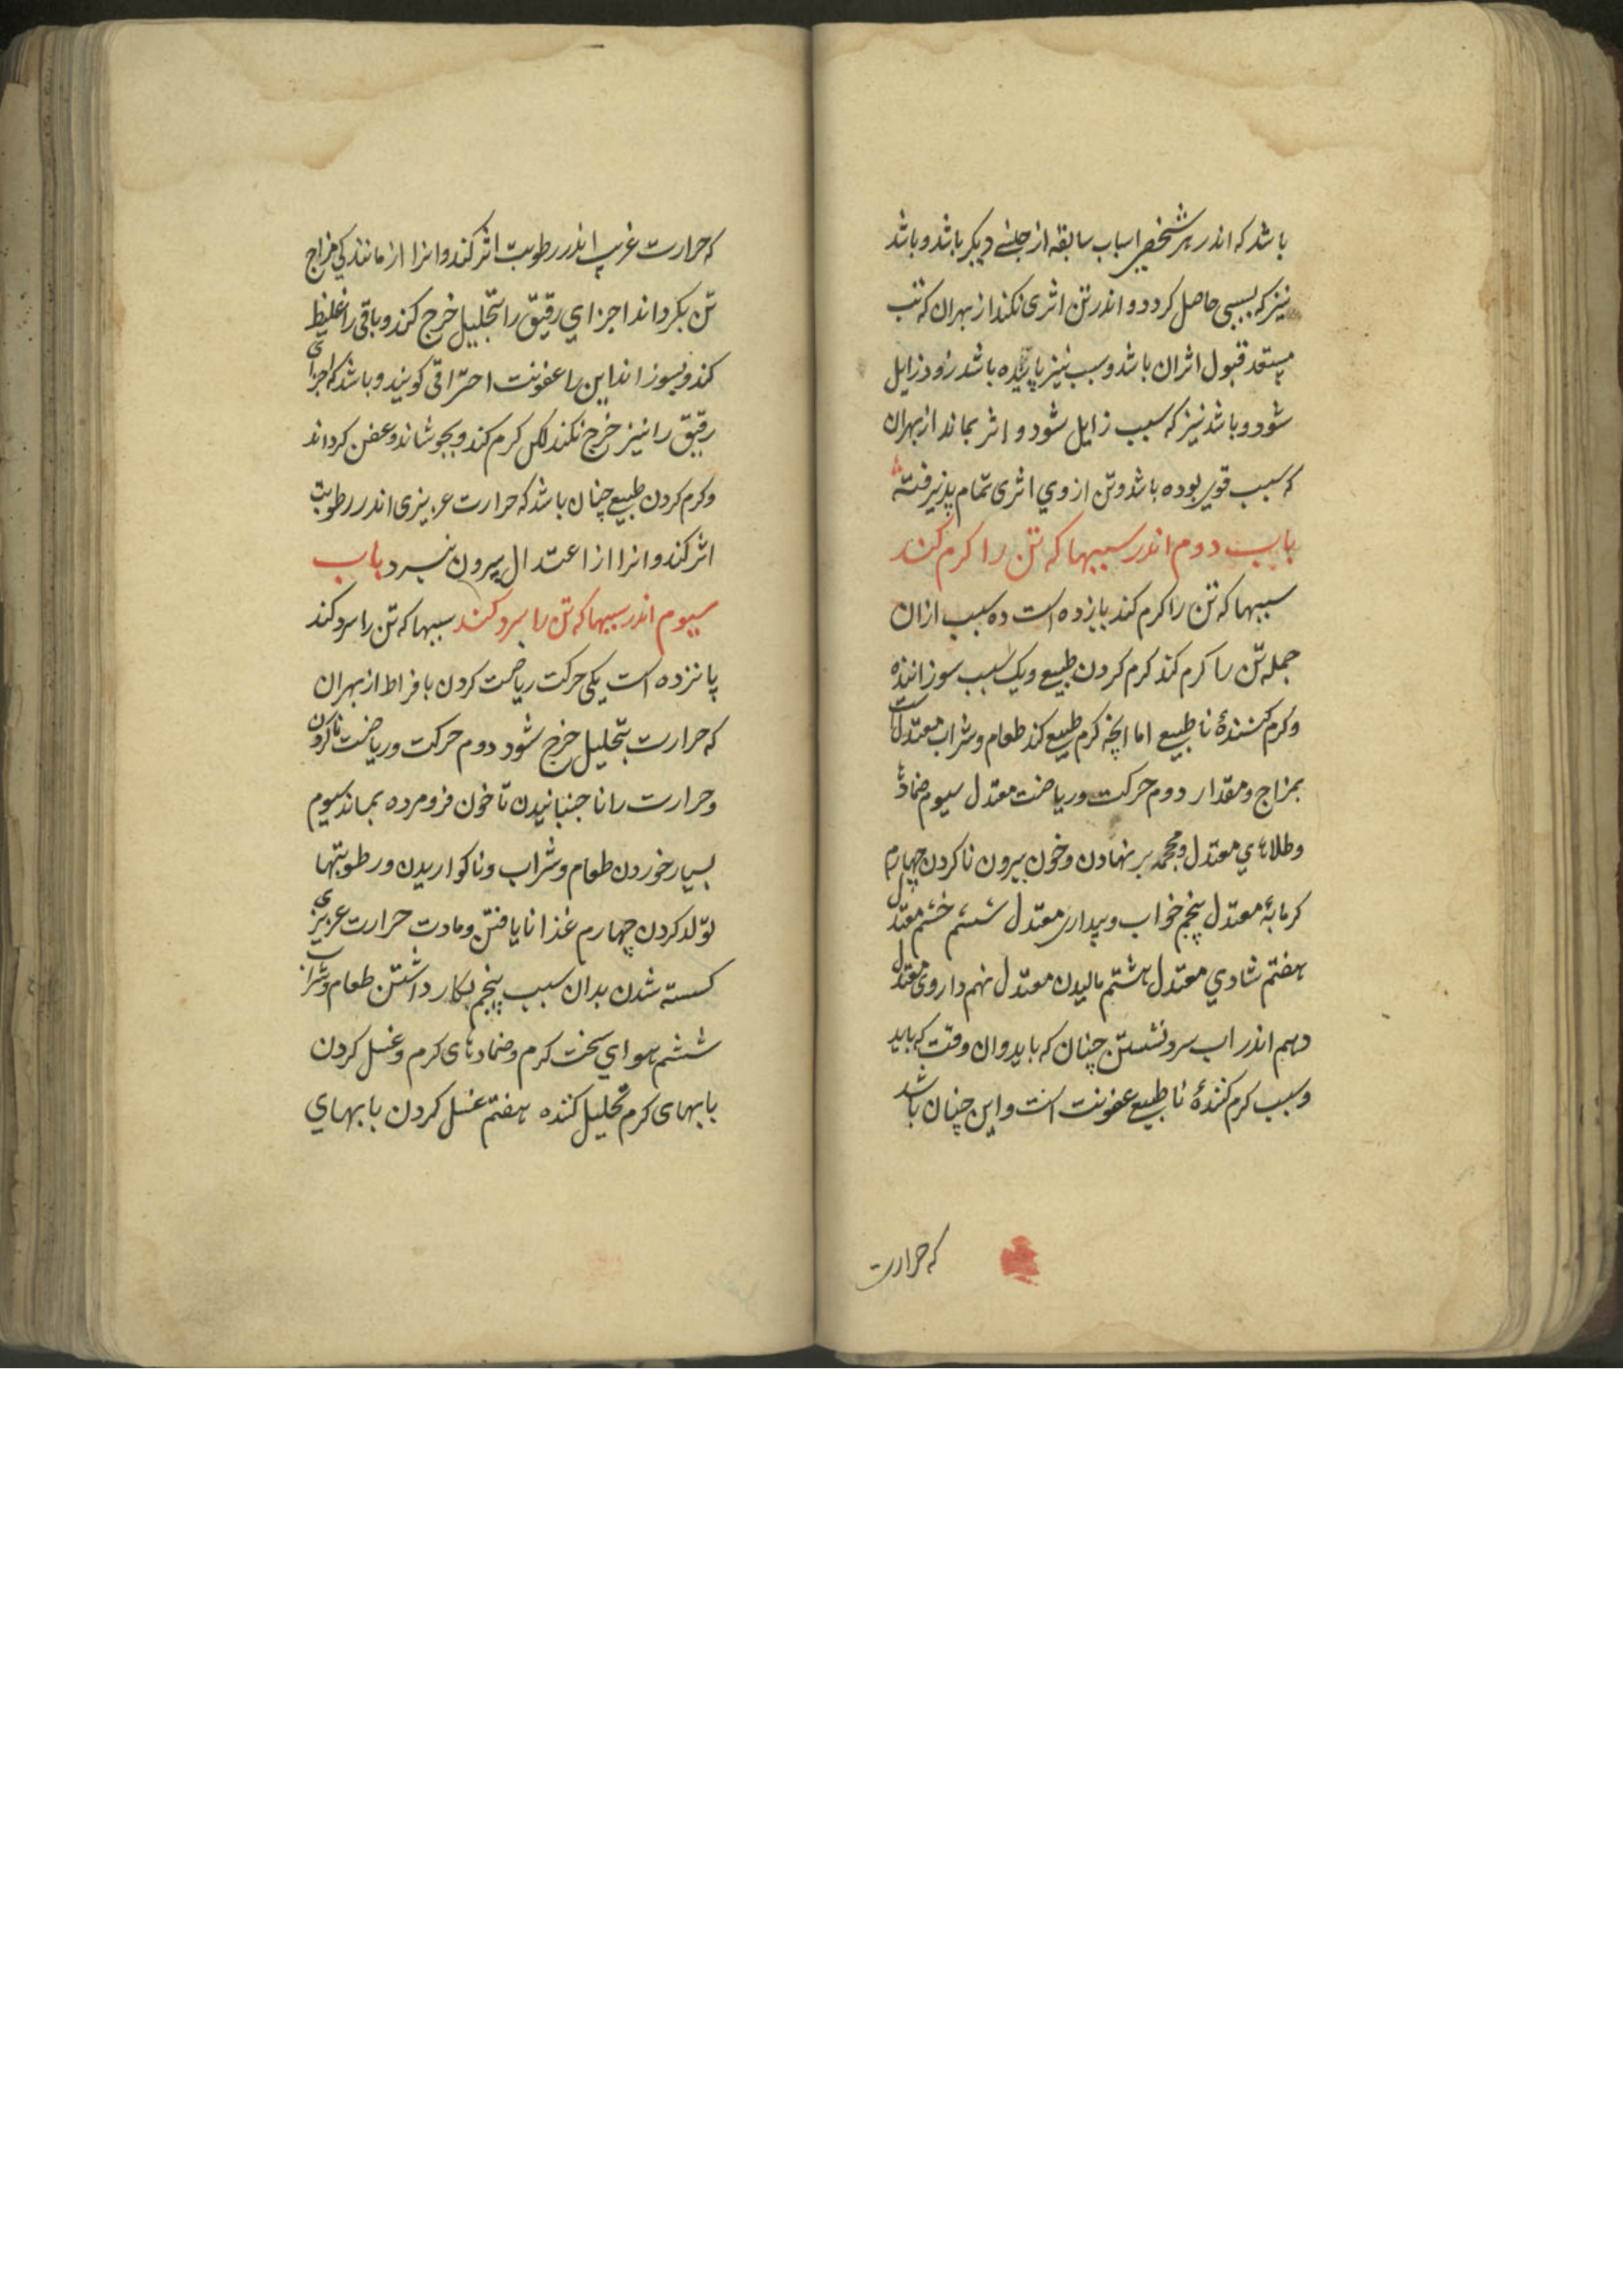 باشد که اندر هر شخصی اسباب سابقه از جنسی دیکر باشد و باشد
نیز که بسببی حاصل کردد و اندر تن اثری نکند از بهر ان که تن
مستعد قبول اثر ان باشد و سبب نیز باشد زود زایل
شود و باشد نیز که سبب زایل شود و اثر بماند از بهر ان
که سبب قوی بوده باشد و تن از وی اثری تمام پذیرفته
باب دوم اندر سببها که تن را کرم کند
سببها که تن را کرم کند یازده است ده سبب ازان
جمله تن را کرم کند کرم کردن طبیعی و یک سبب سوزاننده
و کرم کنندۀ نا طبیعی اما انچه کرم طبیعی کند طعام و شراب معتدل است
بمزاج و مقدار دوم حرکت و ریاضت معتدل سیوم ضماد
و طلاهای معتدل و محجمه بر نهادن و خون بیرون ناکردن چهارم
کرمابۀ معتدل پنجم خواب و بیداری معتدل ششم خشم معتدل
هفتم شادی معتدل هشتم مالیدن معتدل نهم داروی معتدل
دهم اندر اب سرد نشستن چنان که باید و ان وقت که باید
و سبب کرم کنندۀ نا طبیعی عفونت است و این چنان باشد
که حرارت
که حرارت غریب اندر رطوبت اثر کند و انرا از مانندکی مزاج
تن بکرداند اجزای رقیق را بتحلیل خرج کند و باقی را غلیظ
کند و بسوزاند این را عفونت احتراقی کویند و باشد که اجزای
رقیق را نیز خرج نکند لکن کرم کند و بجوشاند و عفن کرداند
و کرم کردن طبیعی چنان باشد که حرارت غریزی اندر رطوبت
اثر کند و انرا از اعتدال بیرون نبرد باب
سیوم اندر سببها که تن را سرد کند سببها که تن را سرد کند
پانزده است یکی حرکت ریاضت کردن بافراط از بهر ان
که حرارت بتحلیل خرج شود دوم حرکت و ریاضت ناکردن
و حرارت را نا جنبانیدن تا خون فرو مرده بماند سیوم
بسیار خوردن طعام و شراب و ناکواریدن و رطوبتها
تولد کردن چهارم غذا نایافتن و مادت حرارت غریزی
کسسته شدن بدان سبب پنجم بکار داشتن طعام و شراب
ششم هوای سخت کرم و ضمادهای کرم و غسل کردن
بابهای کرم تحلیل کننده هفتم غسل کردن بابهای